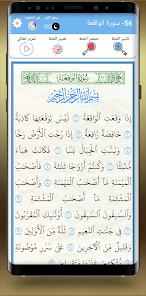 56- سورة الواقعة
تكبير الخط
تصغير الخط
تغيير الخط
تمرير تلقائي
سُورَةُ الْوَاقِعَةِ
بِسْمِ اللَّهِ الرَّحْمَٰنِ الرَّحِيمِ
إِذَا وَقَعَتِ الْوَاقِعَةُ ۝ لَيْسَ لِوَقْعَتِهَا كَاذِبَةٌ ۝
خَافِضَةٌ رَّافِعَةٌ ۝ إِذَا رُجَّتِ الْأَرْضُ رَجًّا
۝ وَبُسَّتِ الْجِبَالُ بَسًّا ۝ فَكَانَتْ هَبَاءً مُّنْبَثًّا
۝ وَكُنتُمْ أَزْوَاجًا ثَلَاثَةً ۝ فَأَصْحَابُ
الْمَيْمَنَةِ مَا أَصْحَابُ الْمَيْمَنَةِ ۝ وَأَصْحَابُ
الْمَشْأَمَةِ مَا أَصْحَابُ الْمَشْأَمَةِ ۝
وَالسَّابِقُونَ السَّابِقُونَ ۝ أُولَٰئِكَ الْمُقَرَّبُونَ
۝ فِي جَنَّاتِ النَّعِيمِ ۝ ثُلَّةٌ مِّنَ الْأَوَّلِينَ ۝
وَقَلِيلٌ مِّنَ الْآخِرِينَ ۝ عَلَىٰ سُرُرٍ مَّوْضُونَةٍ